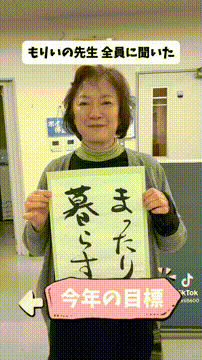 もりいの先生 全員に聞いた
まったり
暮らす
今年の目標
TikTok